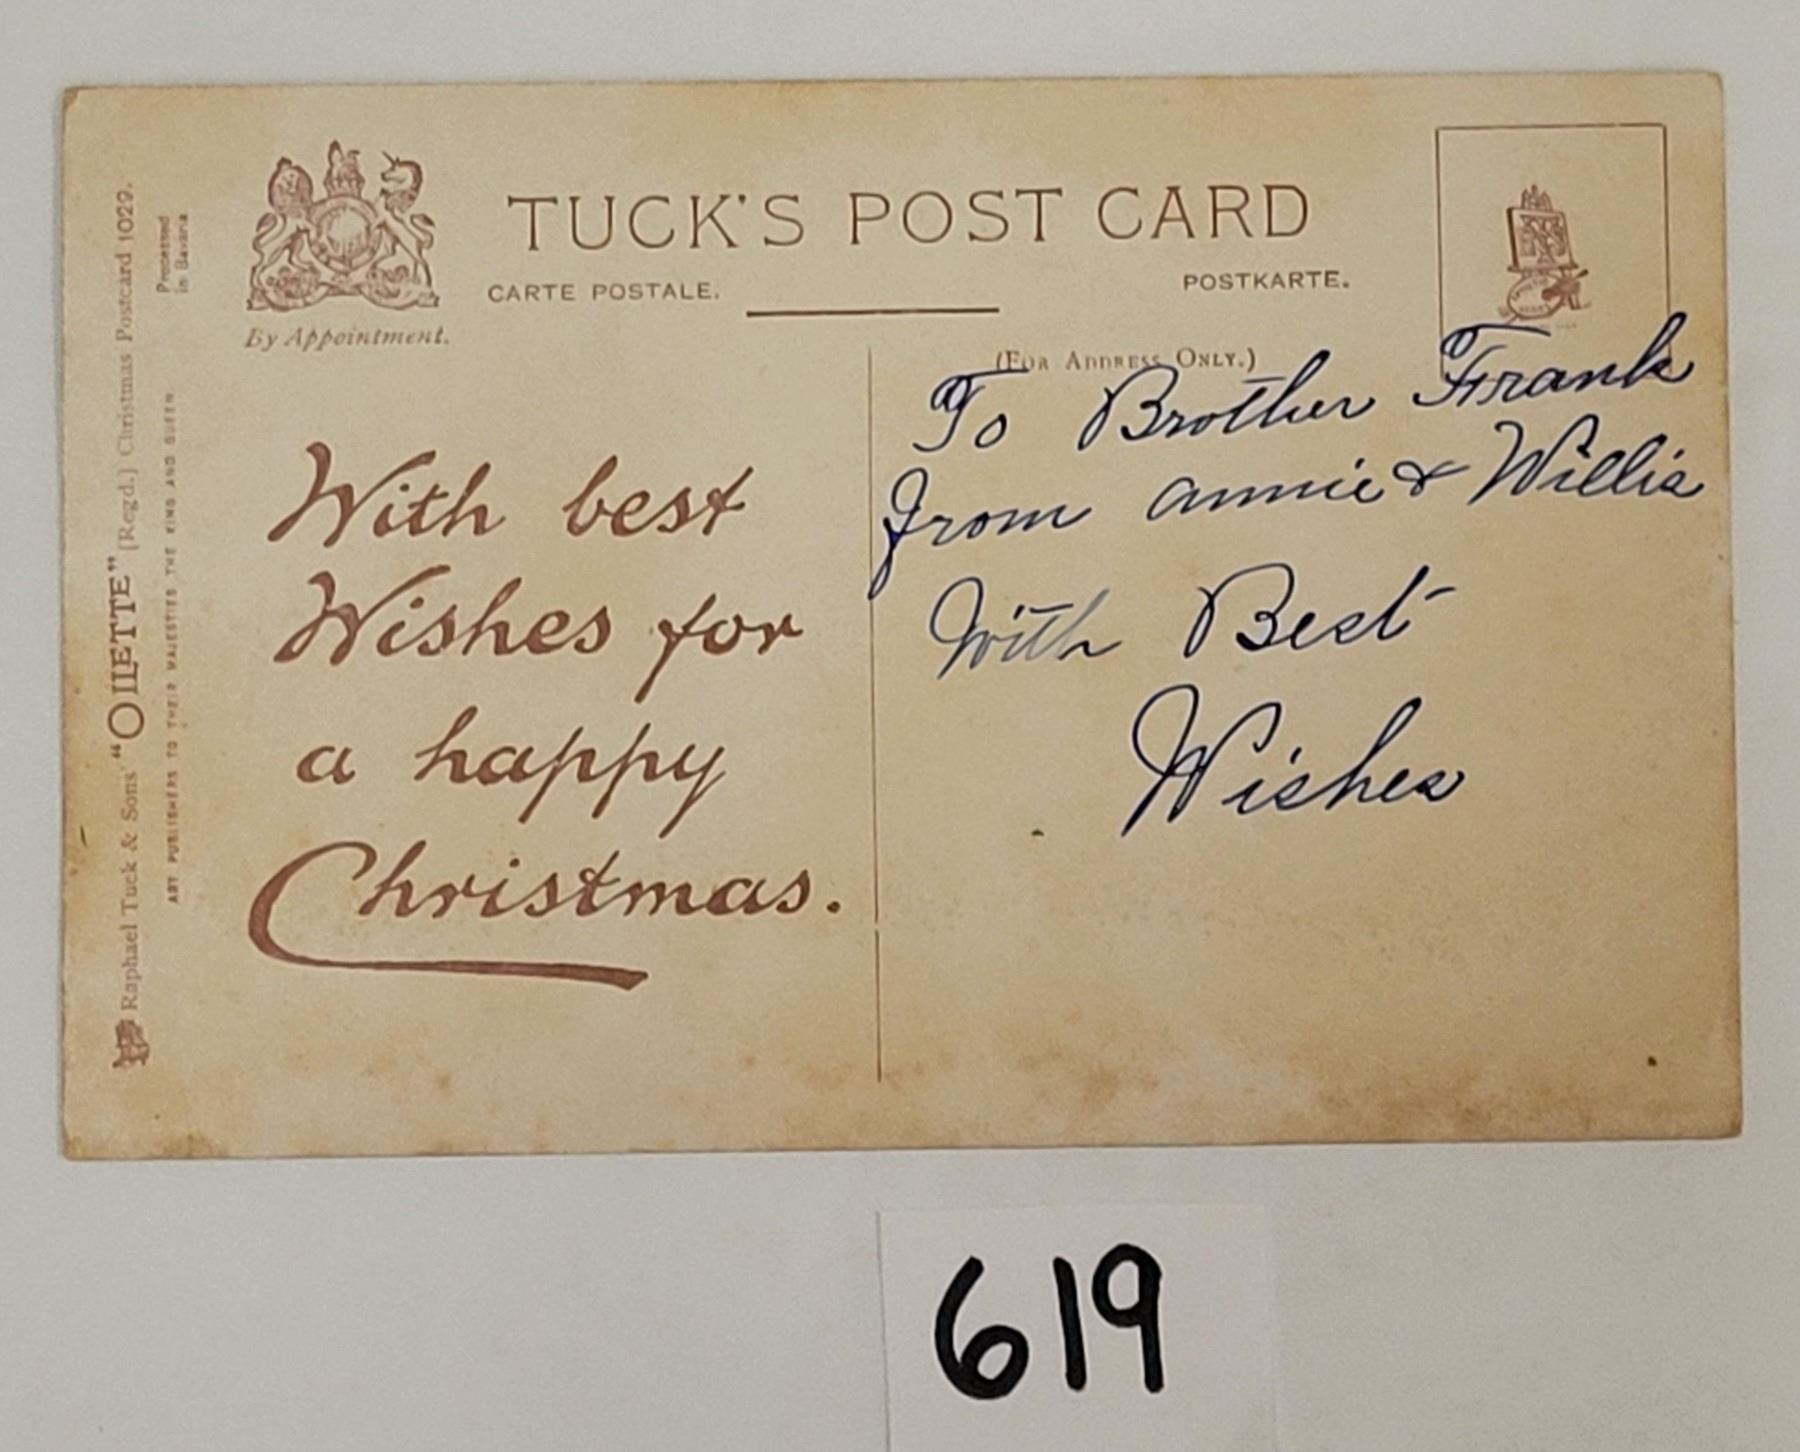 TUCK'S POST CARD
CARTE POSTALE.
POSTKARTE.
By Appointment.
(FOR ADDRESS ONLY.)
Raphael Tuck & Sons' "OILETTE" [Regd.] Christmas Postcard 1029.
Processed
in Bavaria
ART PUBLISHERS TO THEIR MAJESTIES THE KING AND QUEEN
With best
Wishes for
a happy
Christmas.
To Brother Frank
From annie & Willis
With Best
Wishes
619